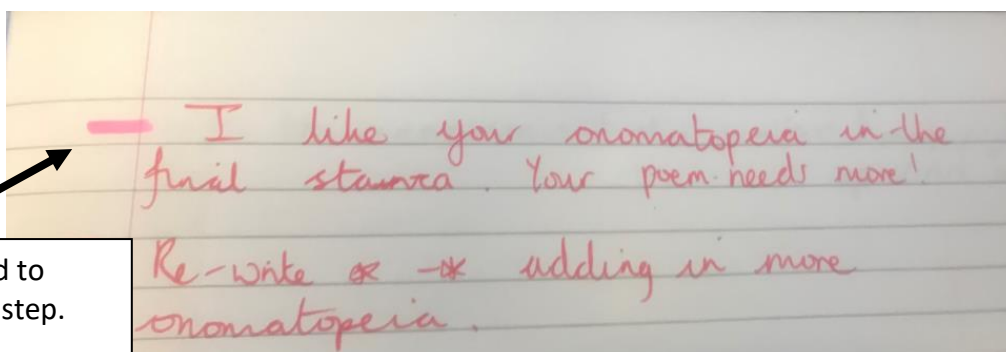 I like your onomatopeia in the
final stanza. Your poem needs more!
Re-write * -* adding in more
onomatopeia.
d to
step.